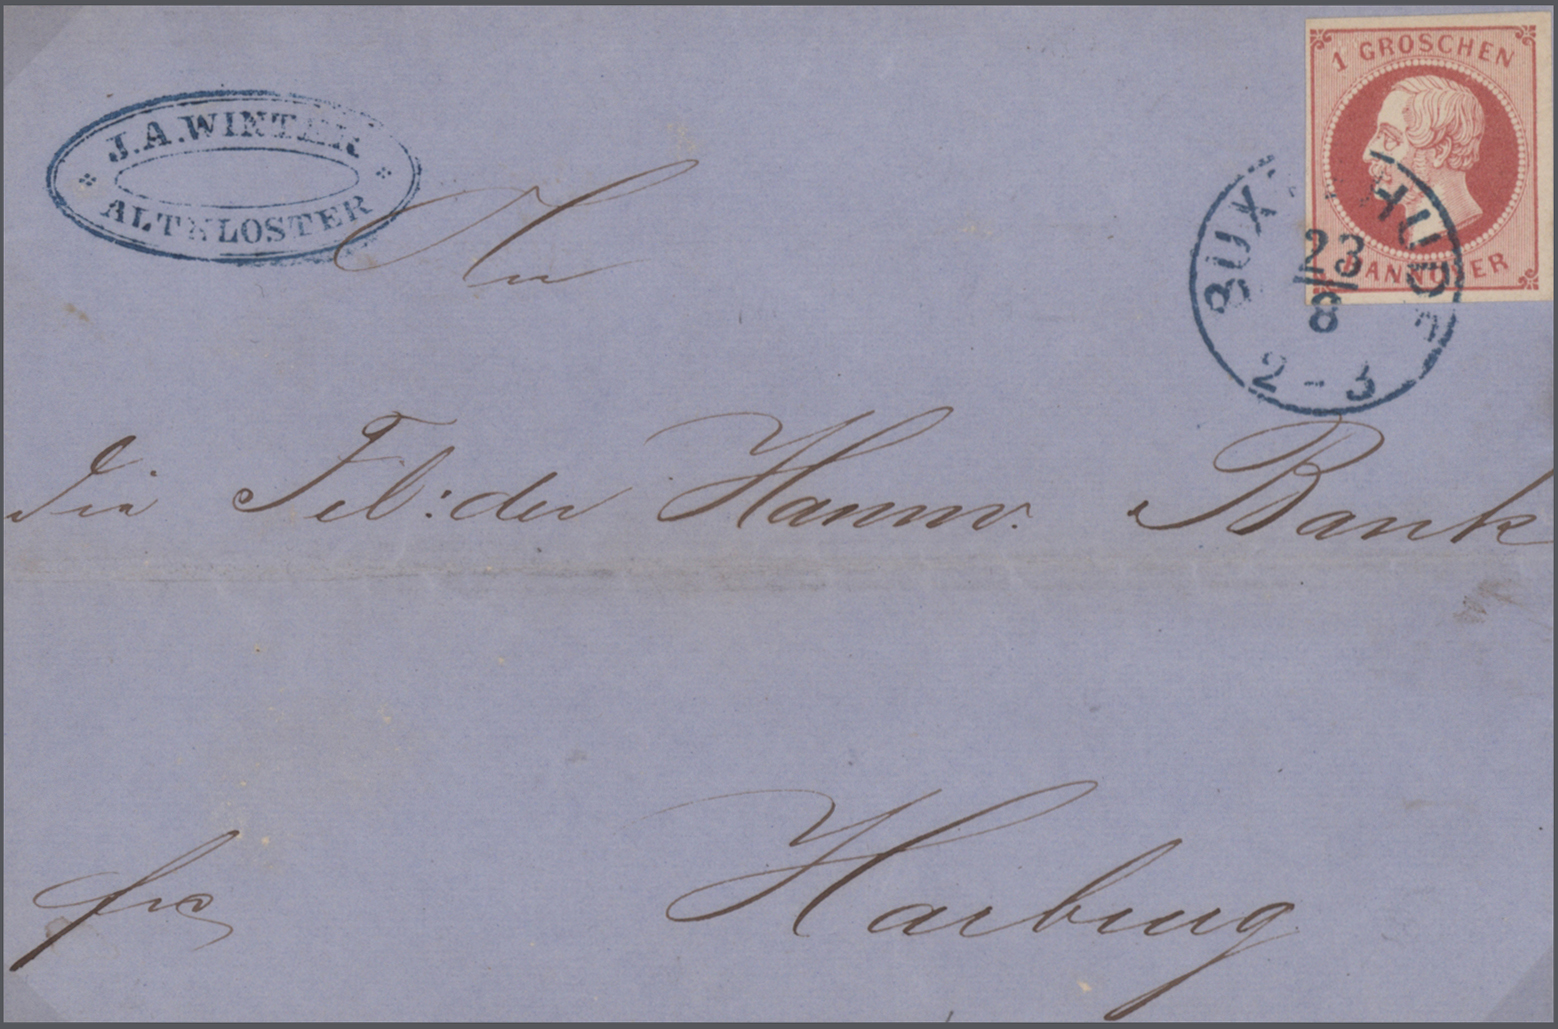 1 GROSCHEN
HANNOVER
J.A.WINTER
ALTKLOSTER
BUXTEHUDE
23
8
2-3
An
die Fil: der Hannov. Bank
frc
Harburg